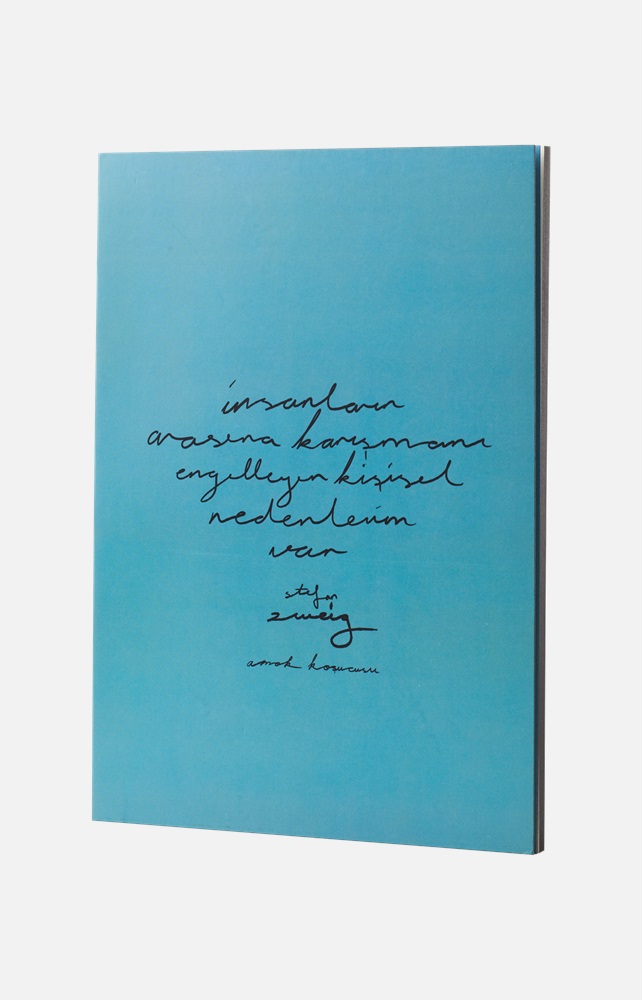 insanların
arasına karışmamı
engelleyen kişisel
nedenlerim
var
stefan
zweig
amok koşucusu